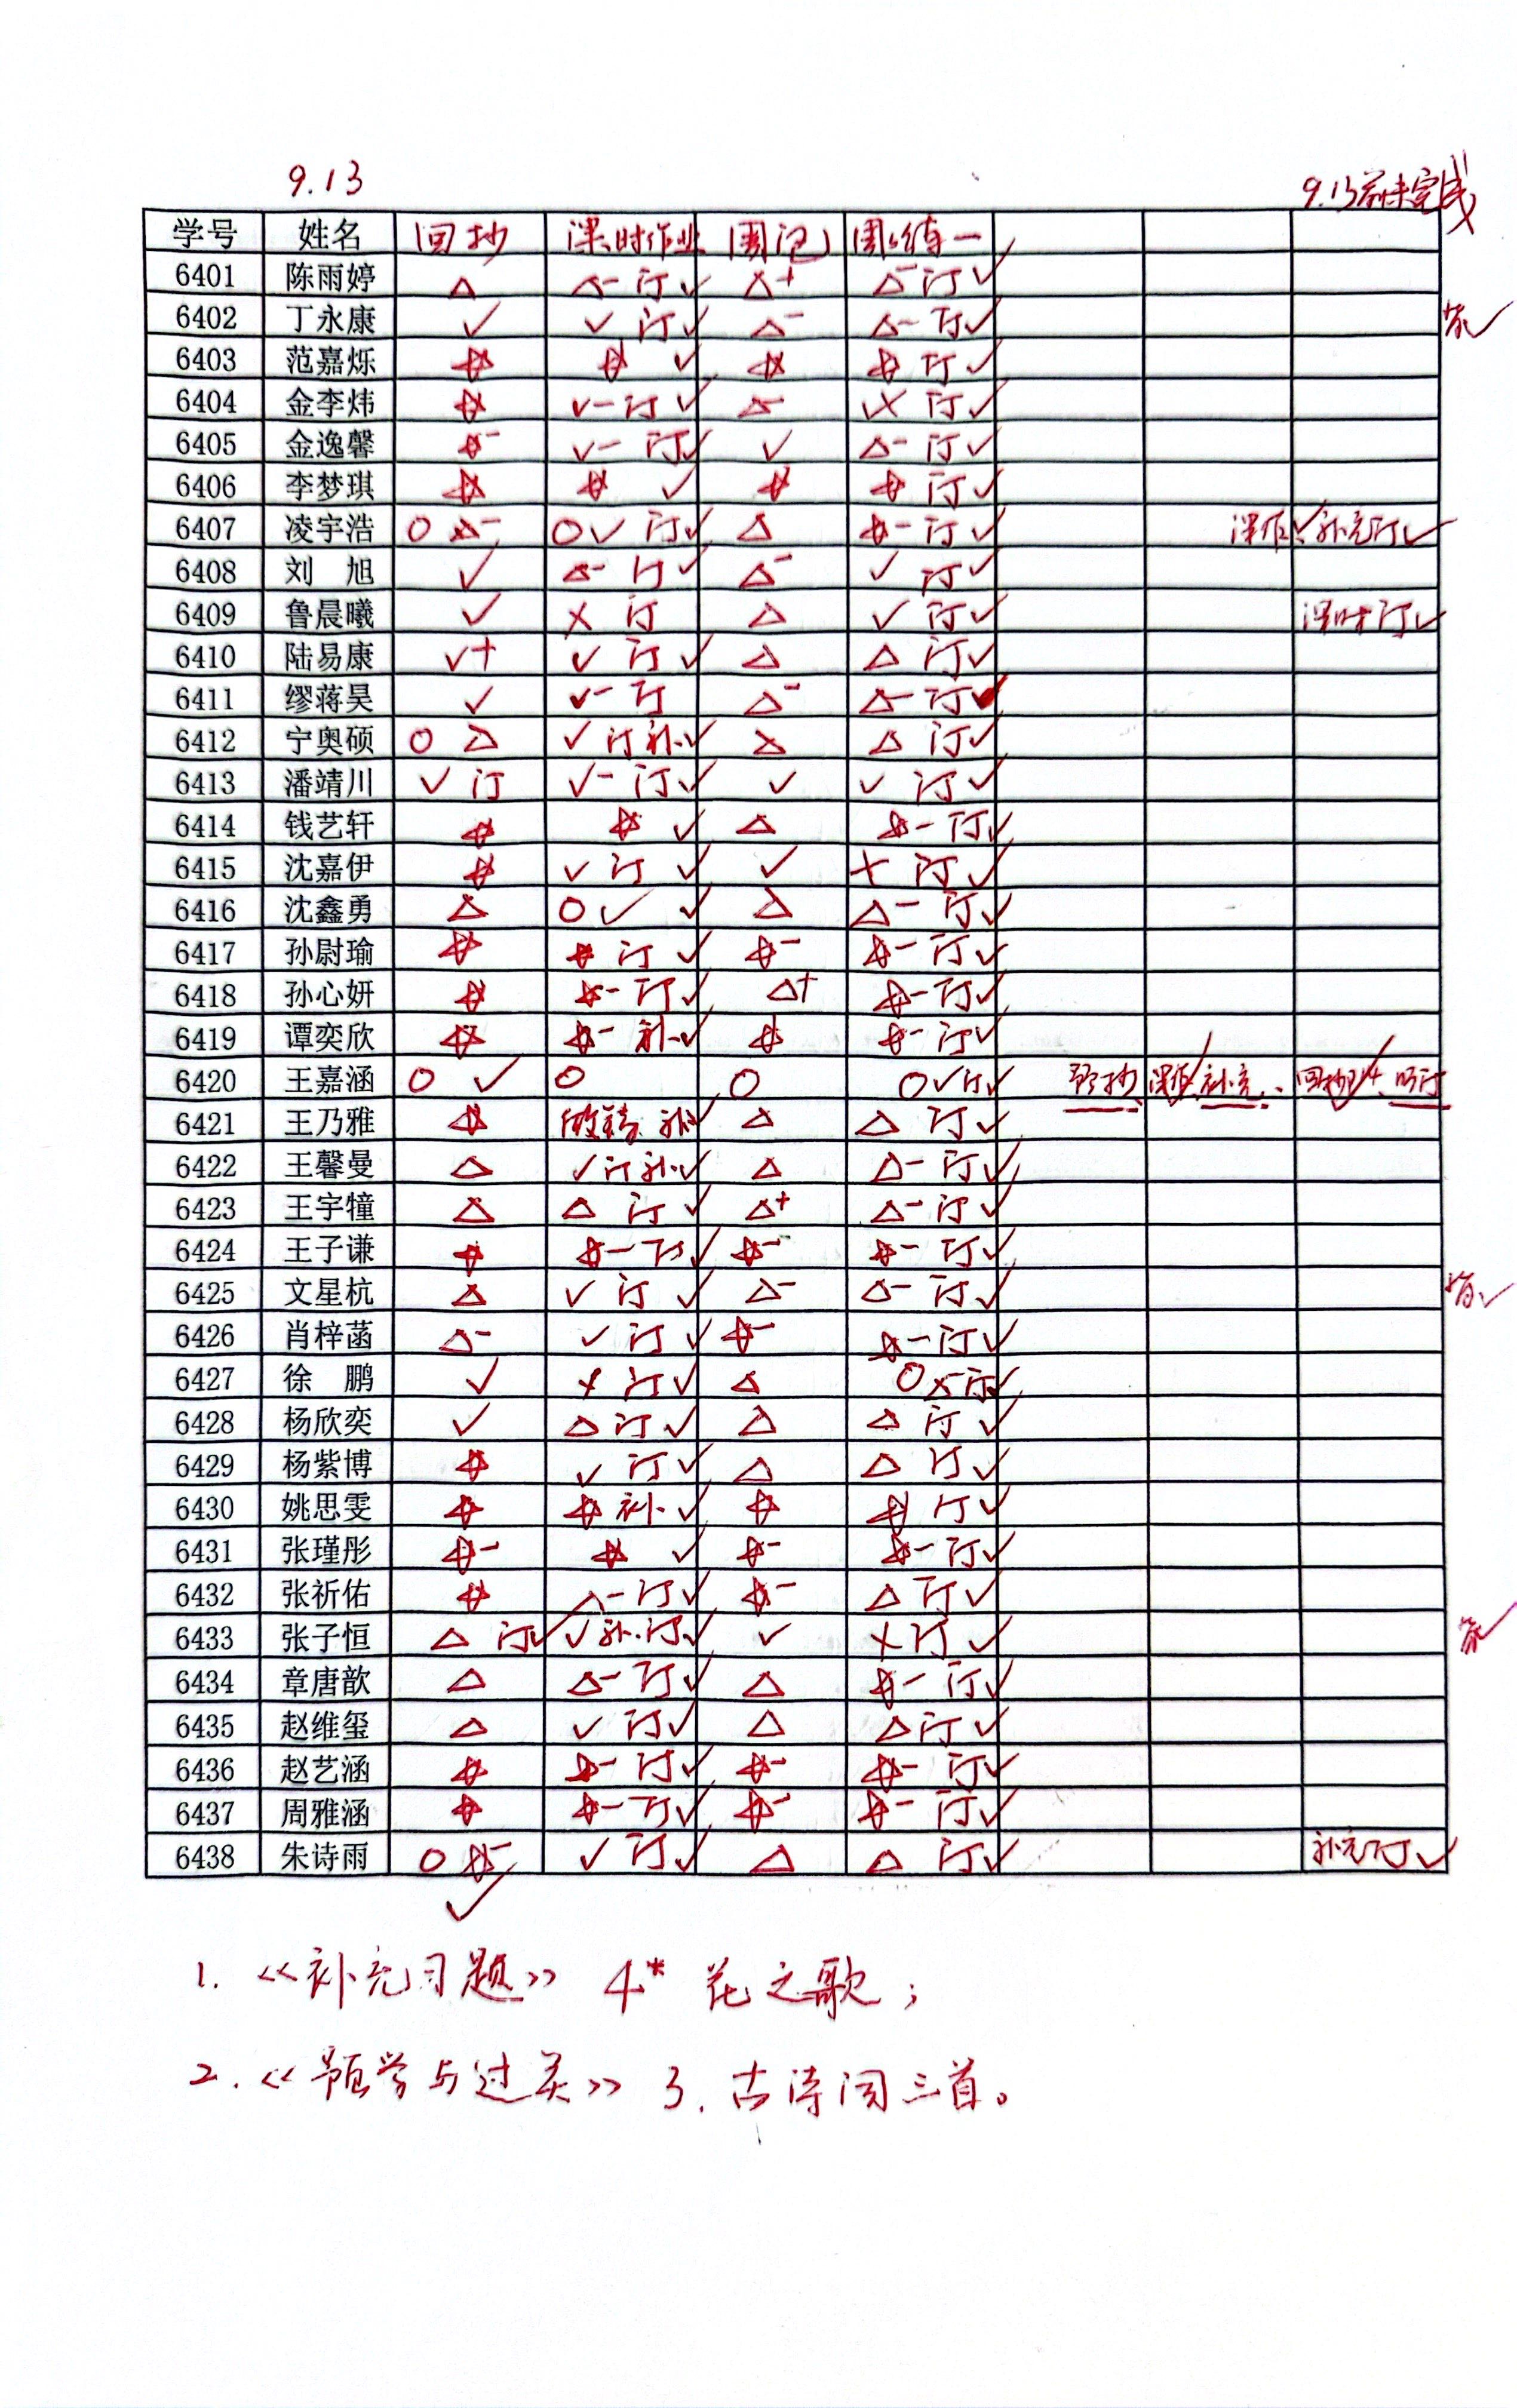 9.13
9.13前未完成
学号 姓名 回抄 课时作业 周记 周练一
6401 陈雨婷 △ △- 订✓ △+ △- 订✓
6402 丁永康 ✓ ✓ 订✓ △- △- 订✓
6403 范嘉烁 ☆ ☆ ✓ ☆ ☆ 订✓
6404 金李炜 ☆ ✓- 订✓ △- 订✓
6405 金逸馨 ☆- ✓- 订✓ ✓ △- 订✓
6406 李梦琪 ☆ ☆ ✓ ☆ ☆ 订✓
6407 凌宇浩 O △- O✓ 订✓ △ ☆- 订✓ 课作✓ 补充订✓
6408 刘 旭 ✓ △- 订✓ △- ✓ 订✓
6409 鲁晨曦 ✓ × 订 △ ✓ 订✓ 课时订✓
6410 陆易康 ✓+ ✓ 订✓ △ △ 订✓
6411 缪蒋昊 ✓ ✓- 订 △- △- 订✓
6412 宁奥硕 O △ ✓ 订补✓ △ △ 订✓
6413 潘靖川 ✓ 订 ✓- 订✓ ✓ ✓ 订✓
6414 钱艺轩 ☆ ☆ ✓ △ ☆- 订✓
6415 沈嘉伊 ☆ ✓ 订 ✓ ✓ × 订✓
6416 沈鑫勇 △ O✓ ✓ △ △- 订✓
6417 孙尉瑜 ☆ ☆ 订✓ ☆- ☆- 订✓
6418 孙心妍 ☆ ☆- 订✓ △+ ☆- 订✓
6419 谭奕欣 ☆ ☆- 补✓ ☆ ☆- 订✓
6420 王嘉涵 O ✓ O O O✓订✓ 预抄 课作✓ 补充 回抄
6421 王乃雅 ☆ 做错 补✓ △ △ 订✓
6422 王馨曼 △ ✓订补✓ △ △- 订✓
6423 王宇犝 △ △ 订✓ △+ △- 订✓
6424 王子谦 ☆ ☆- 订✓ ☆- ☆- 订✓
6425 文星杭 △ ✓ 订✓ △- △- 订✓
6426 肖梓菡 △- ✓ 订✓ ☆- ☆- 订✓
6427 徐 鹏 ✓ × 订✓ △ O × 订✓
6428 杨欣奕 ✓ △ 订✓ △ △ 订✓
6429 杨紫博 ☆ ✓ 订✓ △ △ 订✓
6430 姚思雯 ☆ ☆ 补✓ ☆ ☆ 订✓
6431 张瑾彤 ☆- ☆ ✓ ☆- ☆- 订✓
6432 张祈佑 ☆ △- 订✓ ☆- △ 订✓
6433 张子恒 △ 订✓ ✓补.订✓ ✓ × 订✓
6434 章唐歆 △ △- 订✓ △ ☆- 订✓
6435 赵维玺 △ ✓ 订✓ △ △ 订✓
6436 赵艺涵 ☆ ☆- 订✓ ☆- ☆- 订✓
6437 周雅涵 ☆ ☆- 订✓ ☆- ☆- 订✓
6438 朱诗雨 O ☆- ✓ ✓ 订✓ △ △ 订✓ 补充订✓
1. 《补充习题》 4* 花之歌；
2. 《预学与过关》 3. 古诗词三首。